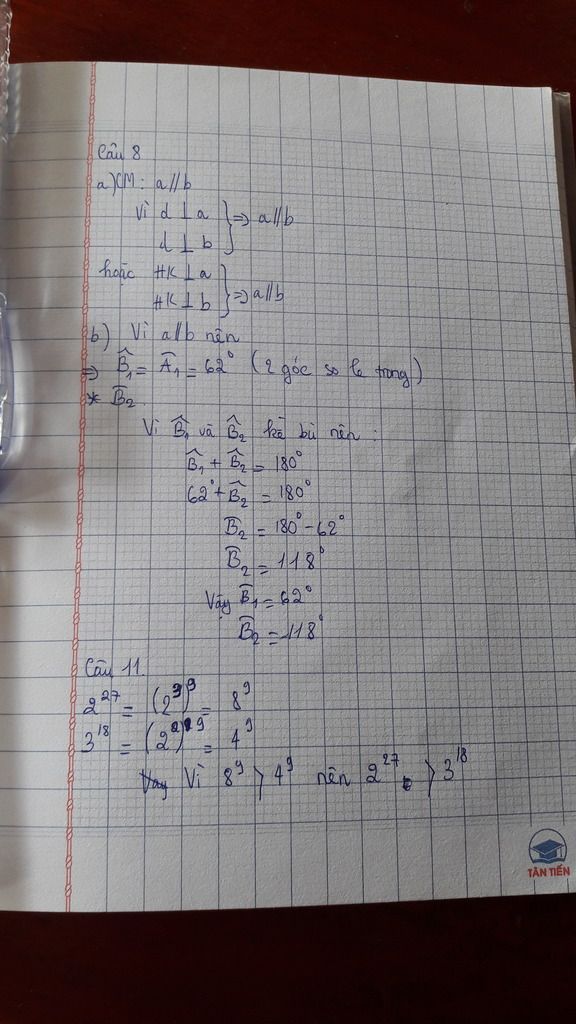 Câu 8
a) CM: a // b
Vì d ⊥ a } => a // b
d ⊥ b
hoặc HK ⊥ a } => a // b
HK ⊥ b
b) Vì a // b nên
=> B̂₁ = Â₁ = 62° (2 góc so le trong)
* B̂₂
Vì B̂₁ và B̂₂ kề bù nên :
B̂₁ + B̂₂ = 180°
62° + B̂₂ = 180°
B̂₂ = 180° - 62°
B̂₂ = 118°
Vậy B̂₁ = 62°
B̂₂ = 118°
Câu 11.
2²⁷ = (2³)⁹ = 8⁹
3¹⁸ = (2²)⁹ = 4⁹
Vì 8⁹ > 4⁹ nên 2²⁷ > 3¹⁸
TÂN TIẾN